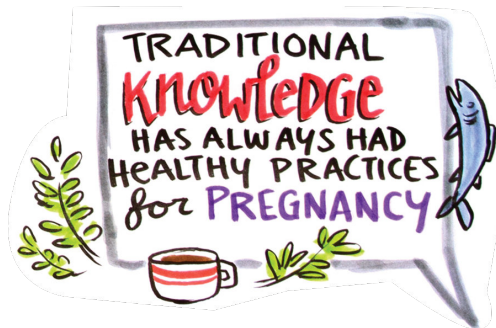 TRADITIONAL
KNOWLEDGE
HAS ALWAYS HAD
HEALTHY PRACTICES
for PREGNANCY